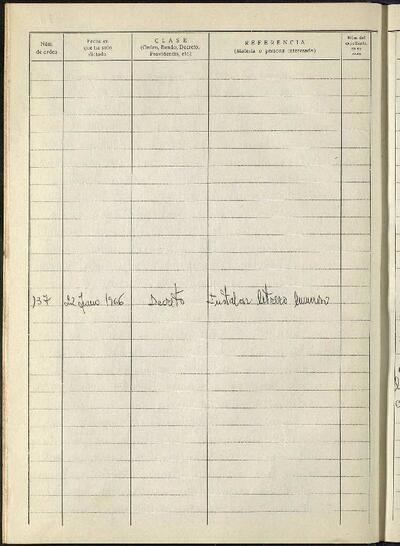 Núm. de orden
Fecha en que ha sido dictado
CLASE
(Orden, Bando, Decreto, Providencia, etc.)
REFERENCIA
(Materia o persona interesada)
Núm. del expediente
137 22 1966 Decreto Instalar letrero luminoso